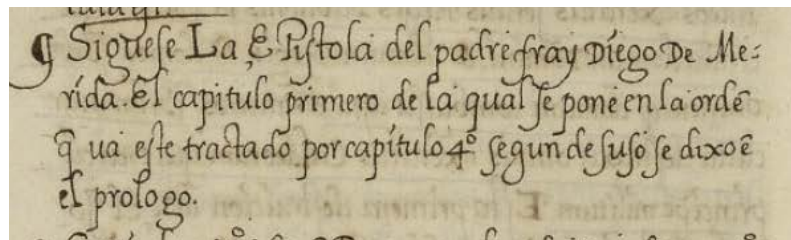 ¶ Siguese La Epistola del padre fray Diego De Me-
rida. El capitulo primero de la qual se pone en la ordẽ
q̃ ua este tractado por capitulo 4º segun de suso se dixo ẽ
el prologo.